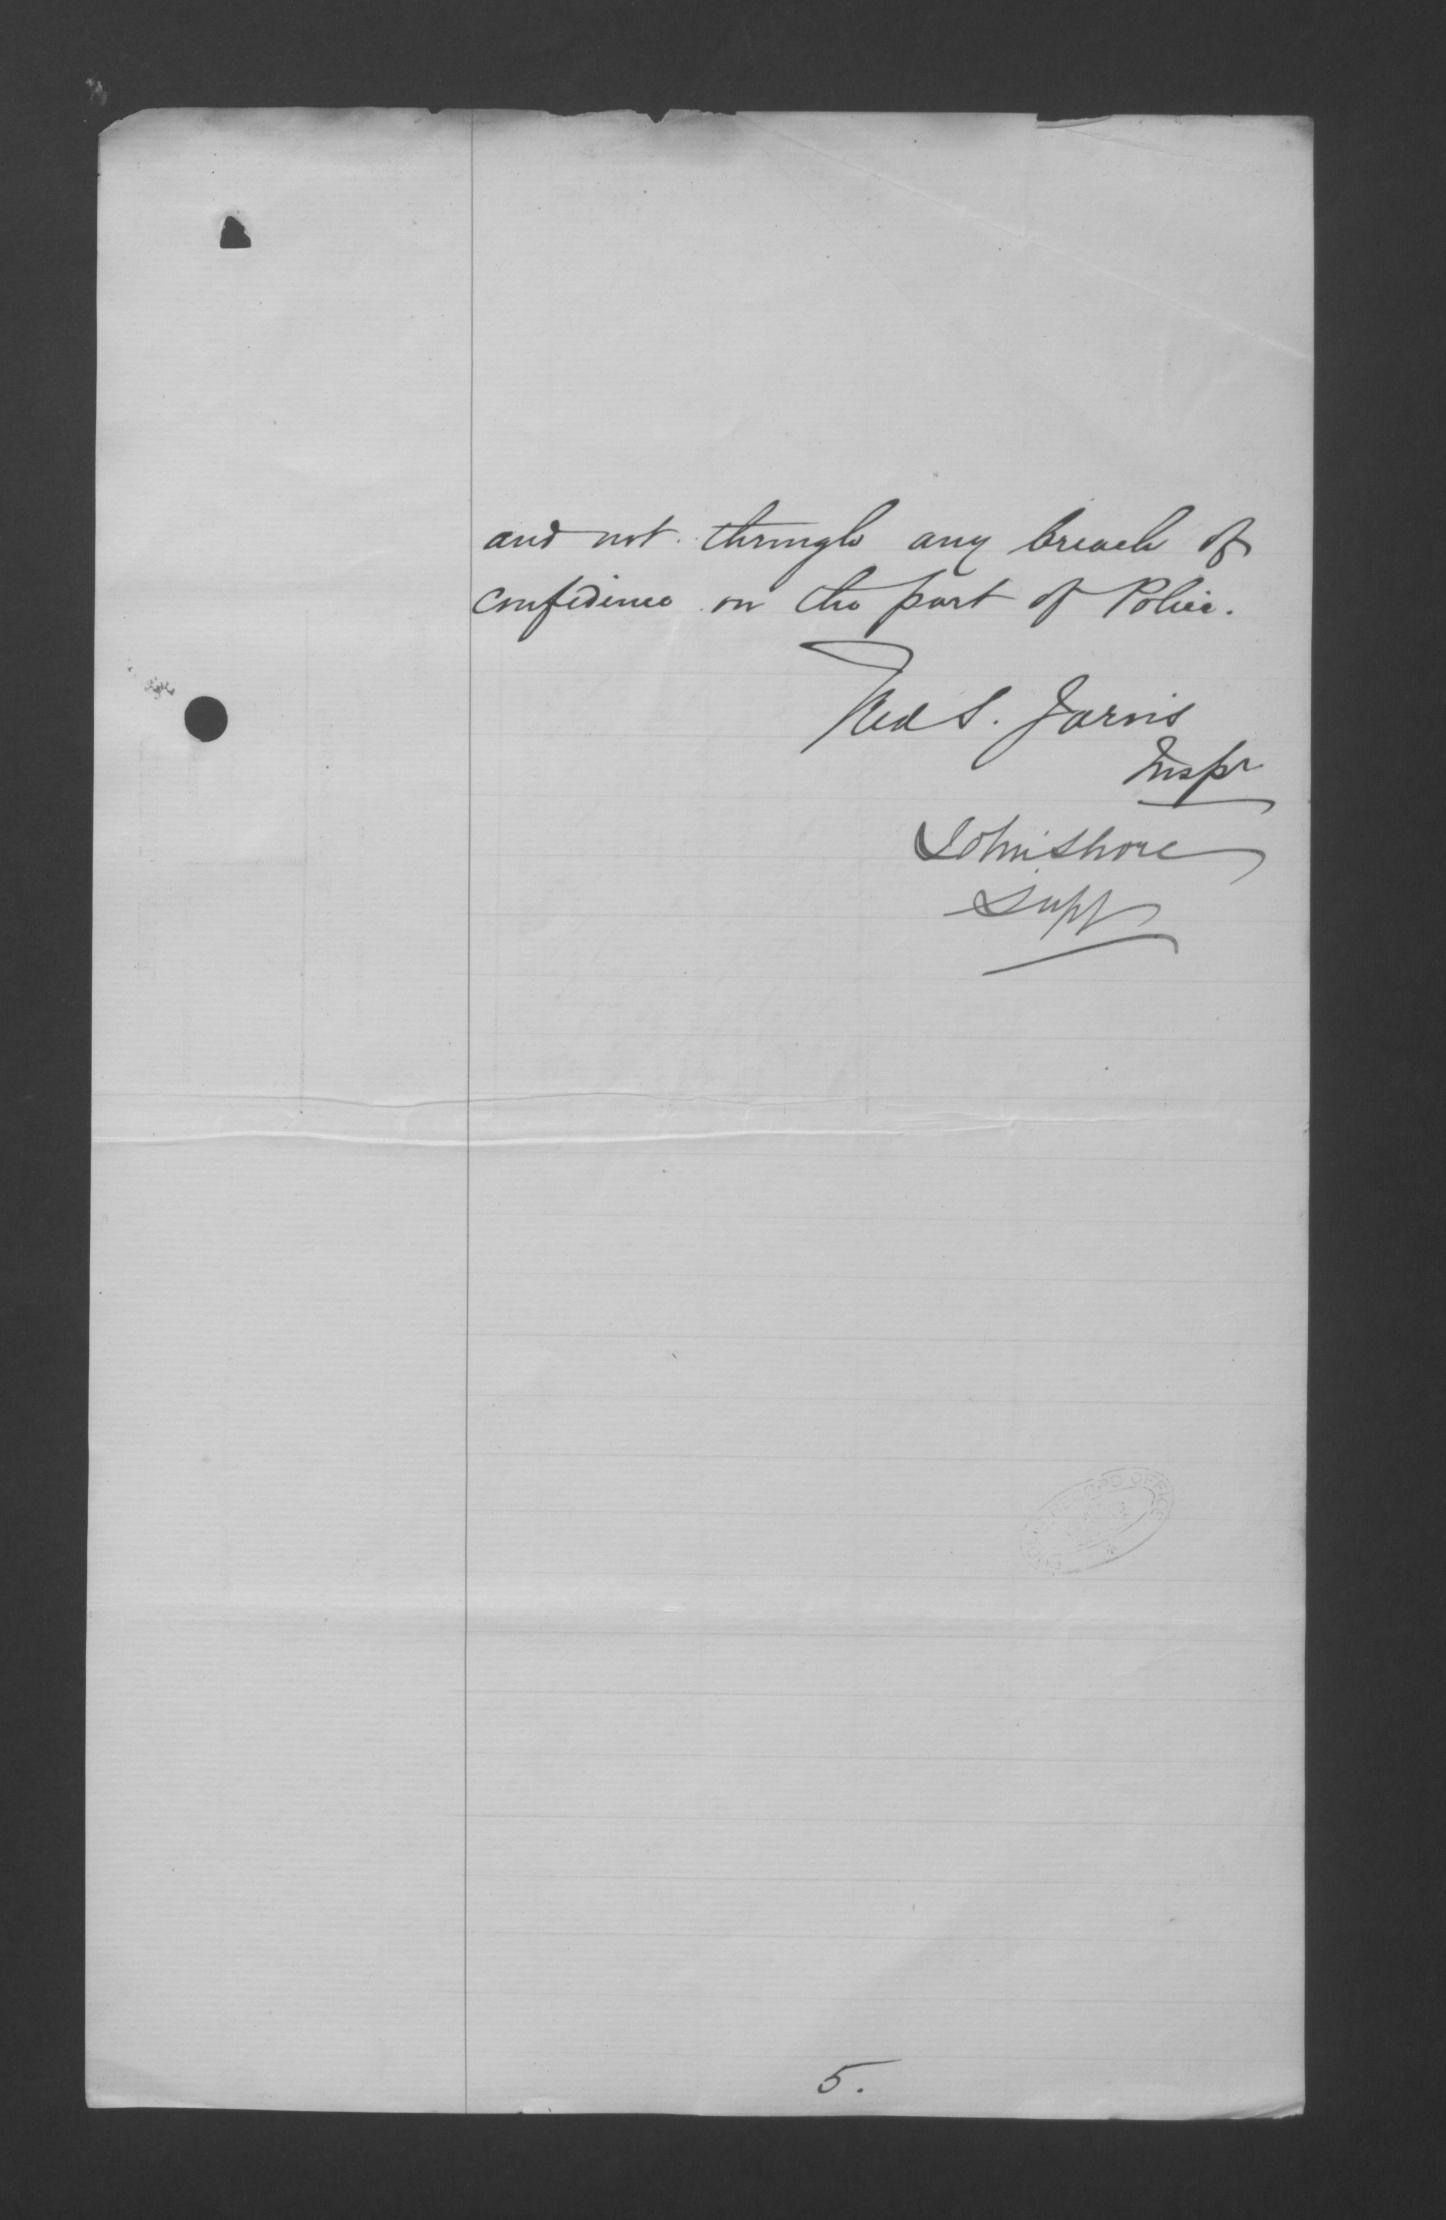 and not through any breach of
confidence on the part of Police.
Fred S. Jarvis
Inspr
John Shore
Supt
RECORD OFFICE
5.